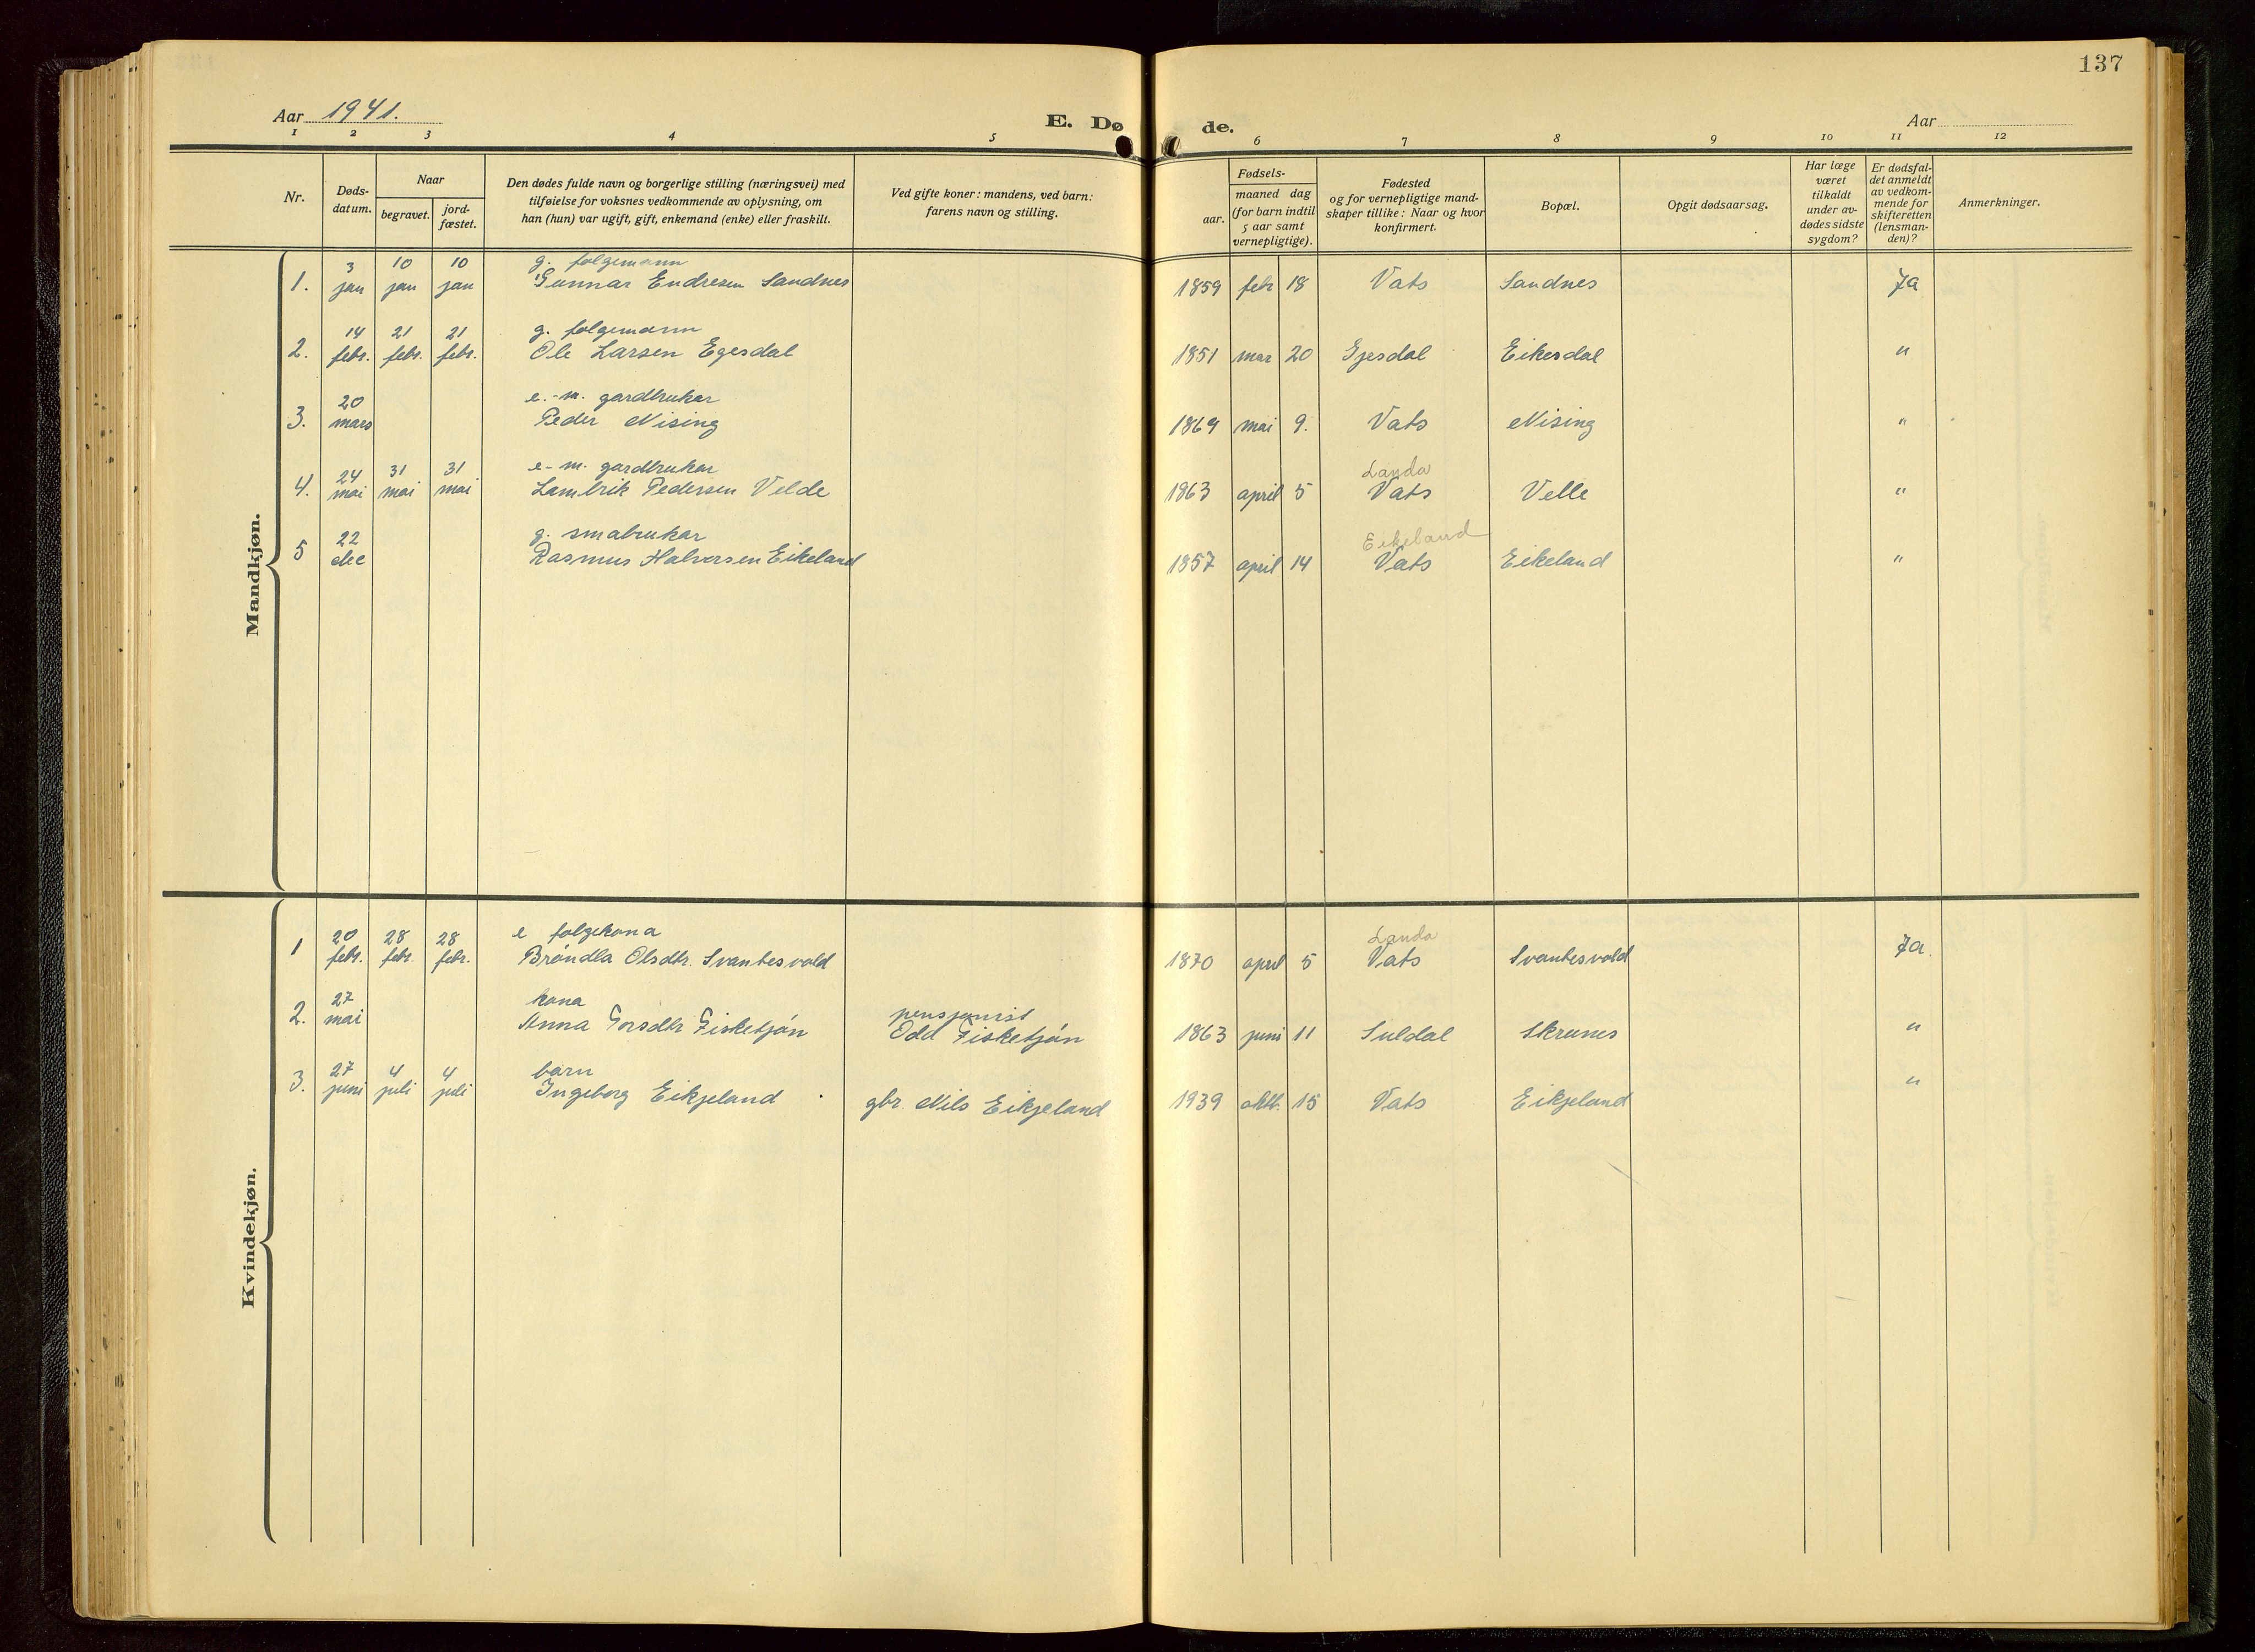 137
Aar 1941.
E. Døde.
Aar
1 2 3 4 5 6 7 8 9 10 11 12
Nr.
Døds-
datum.
Naar
begravet.
jord-
fæstet.
Den dødes fulde navn og borgerlige stilling (næringsvei) med
tilføielse for voksnes vedkommende av oplysning, om
han (hun) var ugift, gift, enkemand (enke) eller fraskilt.
Ved gifte koner: mandens, ved barn:
farens navn og stilling.
Fødsels-
aar.
maaned dag
(for barn indtil
5 aar samt
vernepligtige).
Fødested
og for vernepligtige mand-
skaper tillike: Naar og hvor
konfirmert.
Bopæl.
Opgit dødsaarsag.
Har læge
været
tilkaldt
under av-
dødes sidste
sygdom?
Er dødsfal-
det anmeldt
av vedkom-
mende for
skifteretten
(lensman-
den)?
Anmerkninger.
Mandkjøn.
3 10 10 g. folgemann
1. jan jan jan Gunnar Endresen Sandnes 1859 febr 18 Vats Sandnes Ja
14 21 21 g. folgemann
2. febr. febr. febr. Ole Larsen Egesdal 1851 mar 20 Gjesdal Eikesdal "
20 e.-m. gardbrukar
3. mars Peder Nising 1869 mai 9. Vats Nising "
24 31 31 e-m. gardbrukar Landa
4. mai mai mai Lambrik Pedersen Velde 1863 april 5 Vats Velle "
22 g. smabrukar Eikeland
5 dec Rasmus Halvorsen Eikeland 1857 april 14 Vats Eikeland "
Kvindekjøn.
20 28 28 e folgekona Landa
1 febr. febr. febr. Brøndla Olsdtr. Svantesvold 1870 april 5 Vats Svantesvold Ja.
27 kona pensjonist
2. mai Anna Torsdtr Fisketjøn Odd Fisketjøn 1863 juni 11 Suldal Skrunes "
27 4 4 barn
3. juni juli juli Ingeborg Eikjeland gbr. Nils Eikjeland 1939 oktb. 15 Vats Eikjeland "